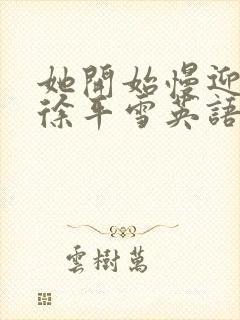 她開始慢迎
徐平雪英語
雲樹萬